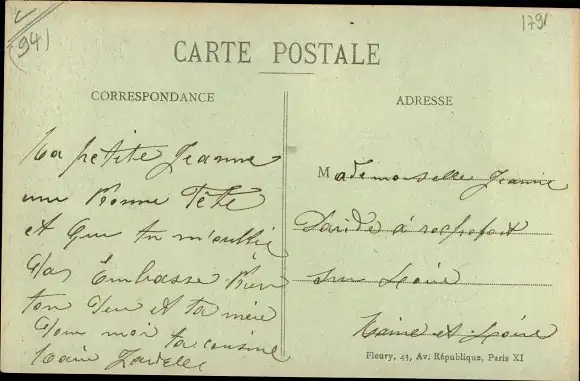 (94)
1791
CARTE POSTALE
CORRESPONDANCE
Ma petite Jeanne
une Bonne Fête
et que tu m'oublie
pas Embrasse Bien
ton pere et ta mère
pour moi ta cousine
ADRESSE
Mademoiselle Jeanne
à rochefort
sur Loire
Maine et Loire
Fleury, 43, Av. République, Paris XI